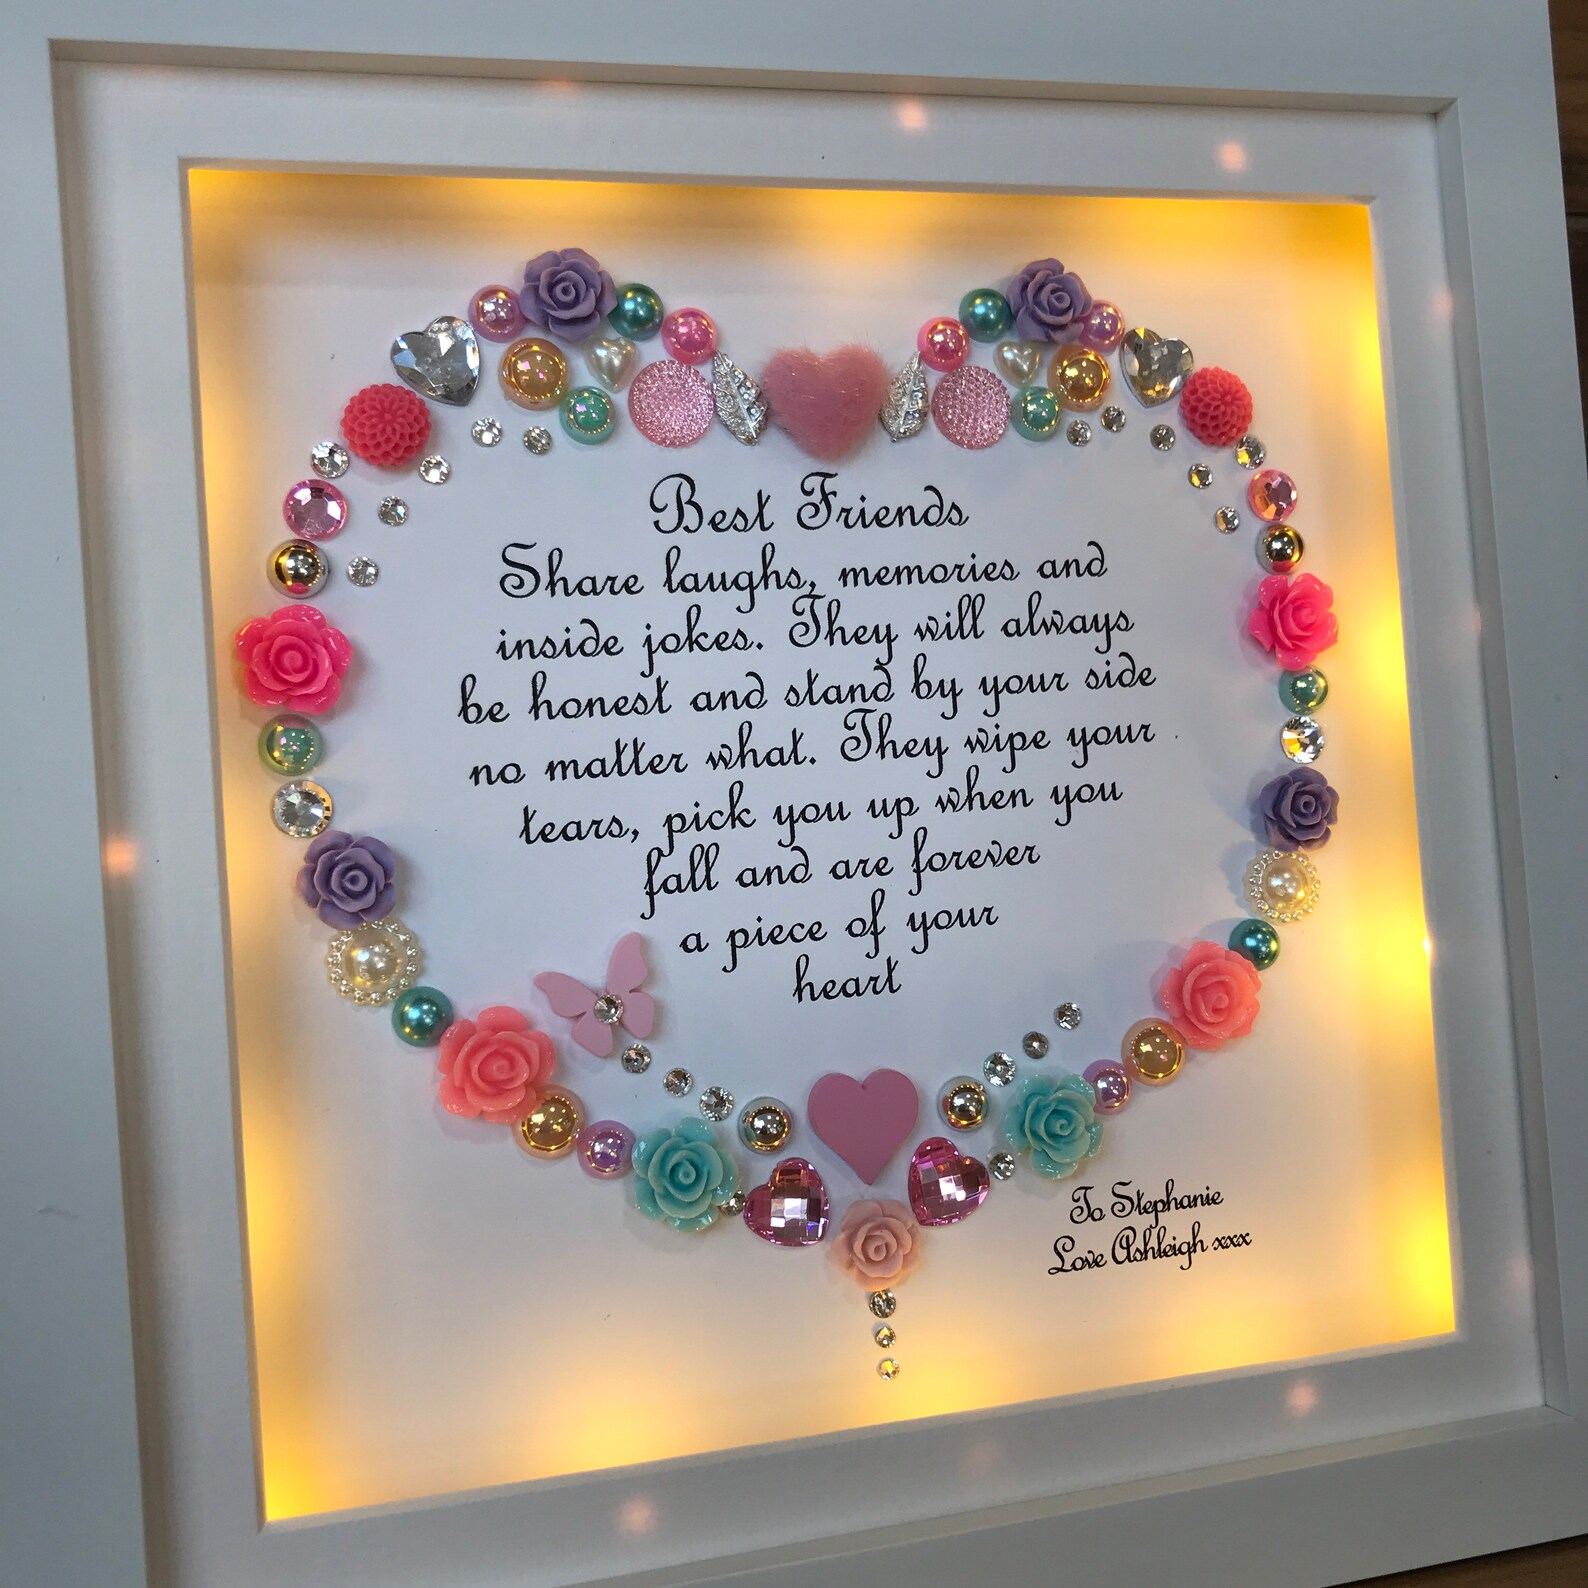 Best Friends
Share laughs, memories and
inside jokes. They will always
be honest and stand by your side
no matter what. They wipe your
tears, pick you up when you
fall and are forever
a piece of your
heart
To Stephanie
Love Ashleigh xxx